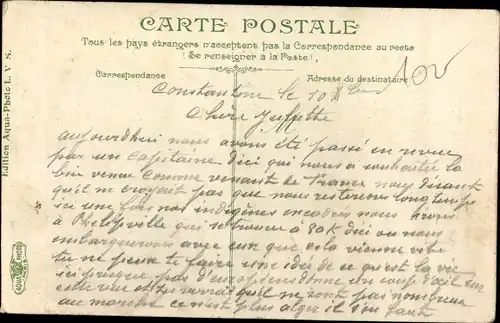 CARTE POSTALE
Tous les pays étrangers n'acceptent pas la Correspondance au recto
(Se renseigner à la Poste).
Correspondance
Adresse du destinataire
Edition Aqua-Photo L. V. S.
Constantine le 10
Chère Juliette
aujourdhui nous avons été passé en revue
par un Capitaine dici qui nous a souhaitée la
bien venue Comme venant de France nous disant
qu'il ne croyent pas que nous resterons longtemps
ici une fois nos indigènes encadrés nous irons
à Philippville qui se trouve à 80K dici ou nous
embarquerons avec eux que cela vienne vite
tu ne peux te faire une idée de ce qu'est la vie
ici presque pas d'européens donne un coup d'œil sur
cette vue et tu verras qu'il ne sont pas nombreux
au marché ce n'est plus alger il s'en faut